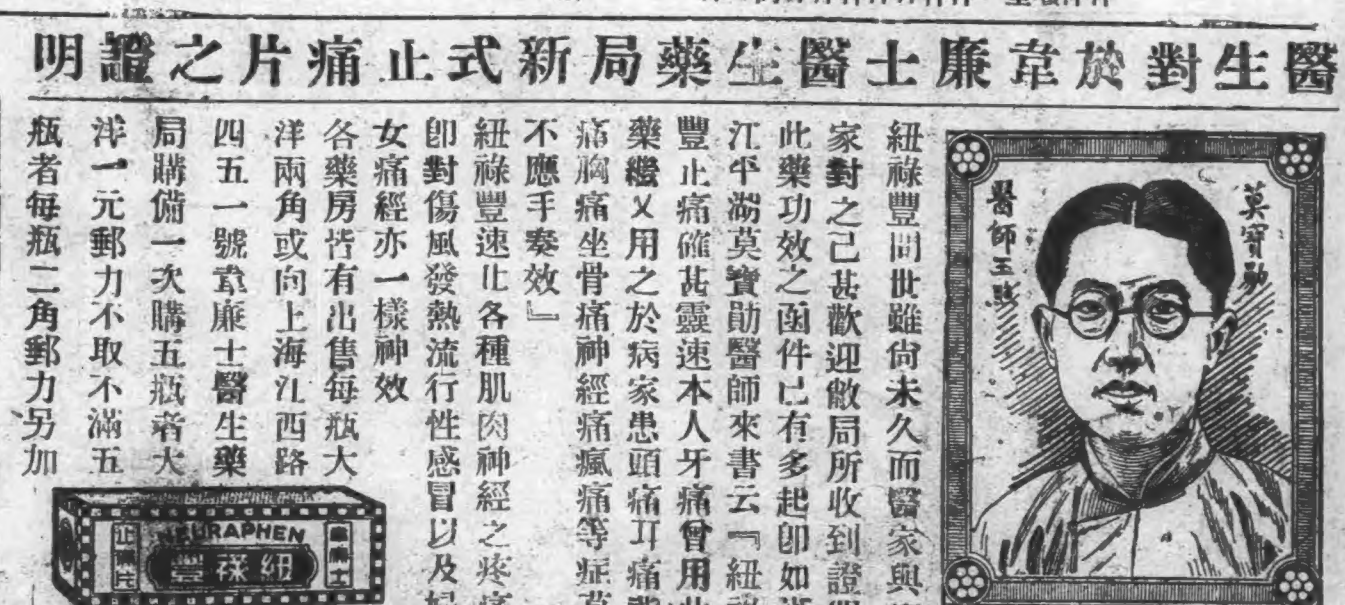 醫生對於韋廉士醫生藥局新式止痛片之證明
莫寶勛
醫師玉照
紐祿豐問世雖尙未久而醫家與
家對之已甚歡迎敝局所收到證
此藥功效之函件已有多起卽如浙
江平湖莫寶勛醫師來書云『紐祿
豐止痛確甚靈速本人牙痛曾用此
藥繼又用之於病家患頭痛耳痛
痛胸痛坐骨痛神經痛瘋痛等症莫
不應手奏效』
紐祿豐速止各種肌肉神經之疼痛
卽對傷風發熱流行性感冒以及婦
女痛經亦一樣神效
各藥房皆有出售每瓶大
洋兩角或向上海江西路
四五一號韋廉士醫生藥
局購備一次購五瓶者大
洋一元郵力不取不滿五
瓶者每瓶二角郵力另加
NEURAPHEN
韋廉士
紐祿豐
止痛片